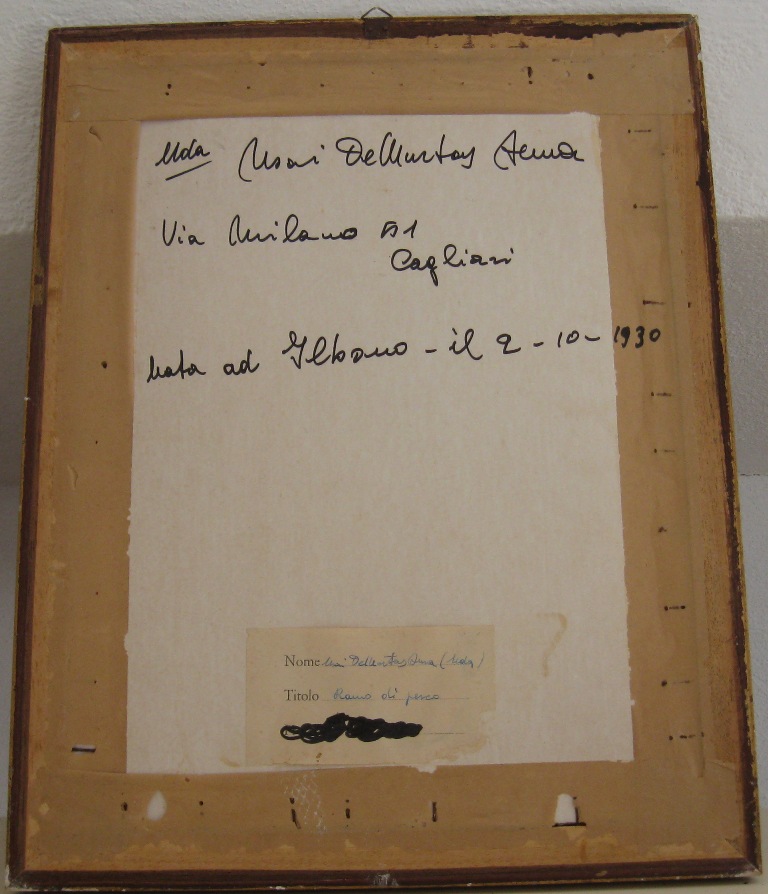 Uda Usai DeMurtas Anna
Via Milano 51
Cagliari
nata ad Ilbono - il 2 - 10 - 1930
Nome Usai DeMurtas Anna (Uda)
Titolo Ramo di pesco